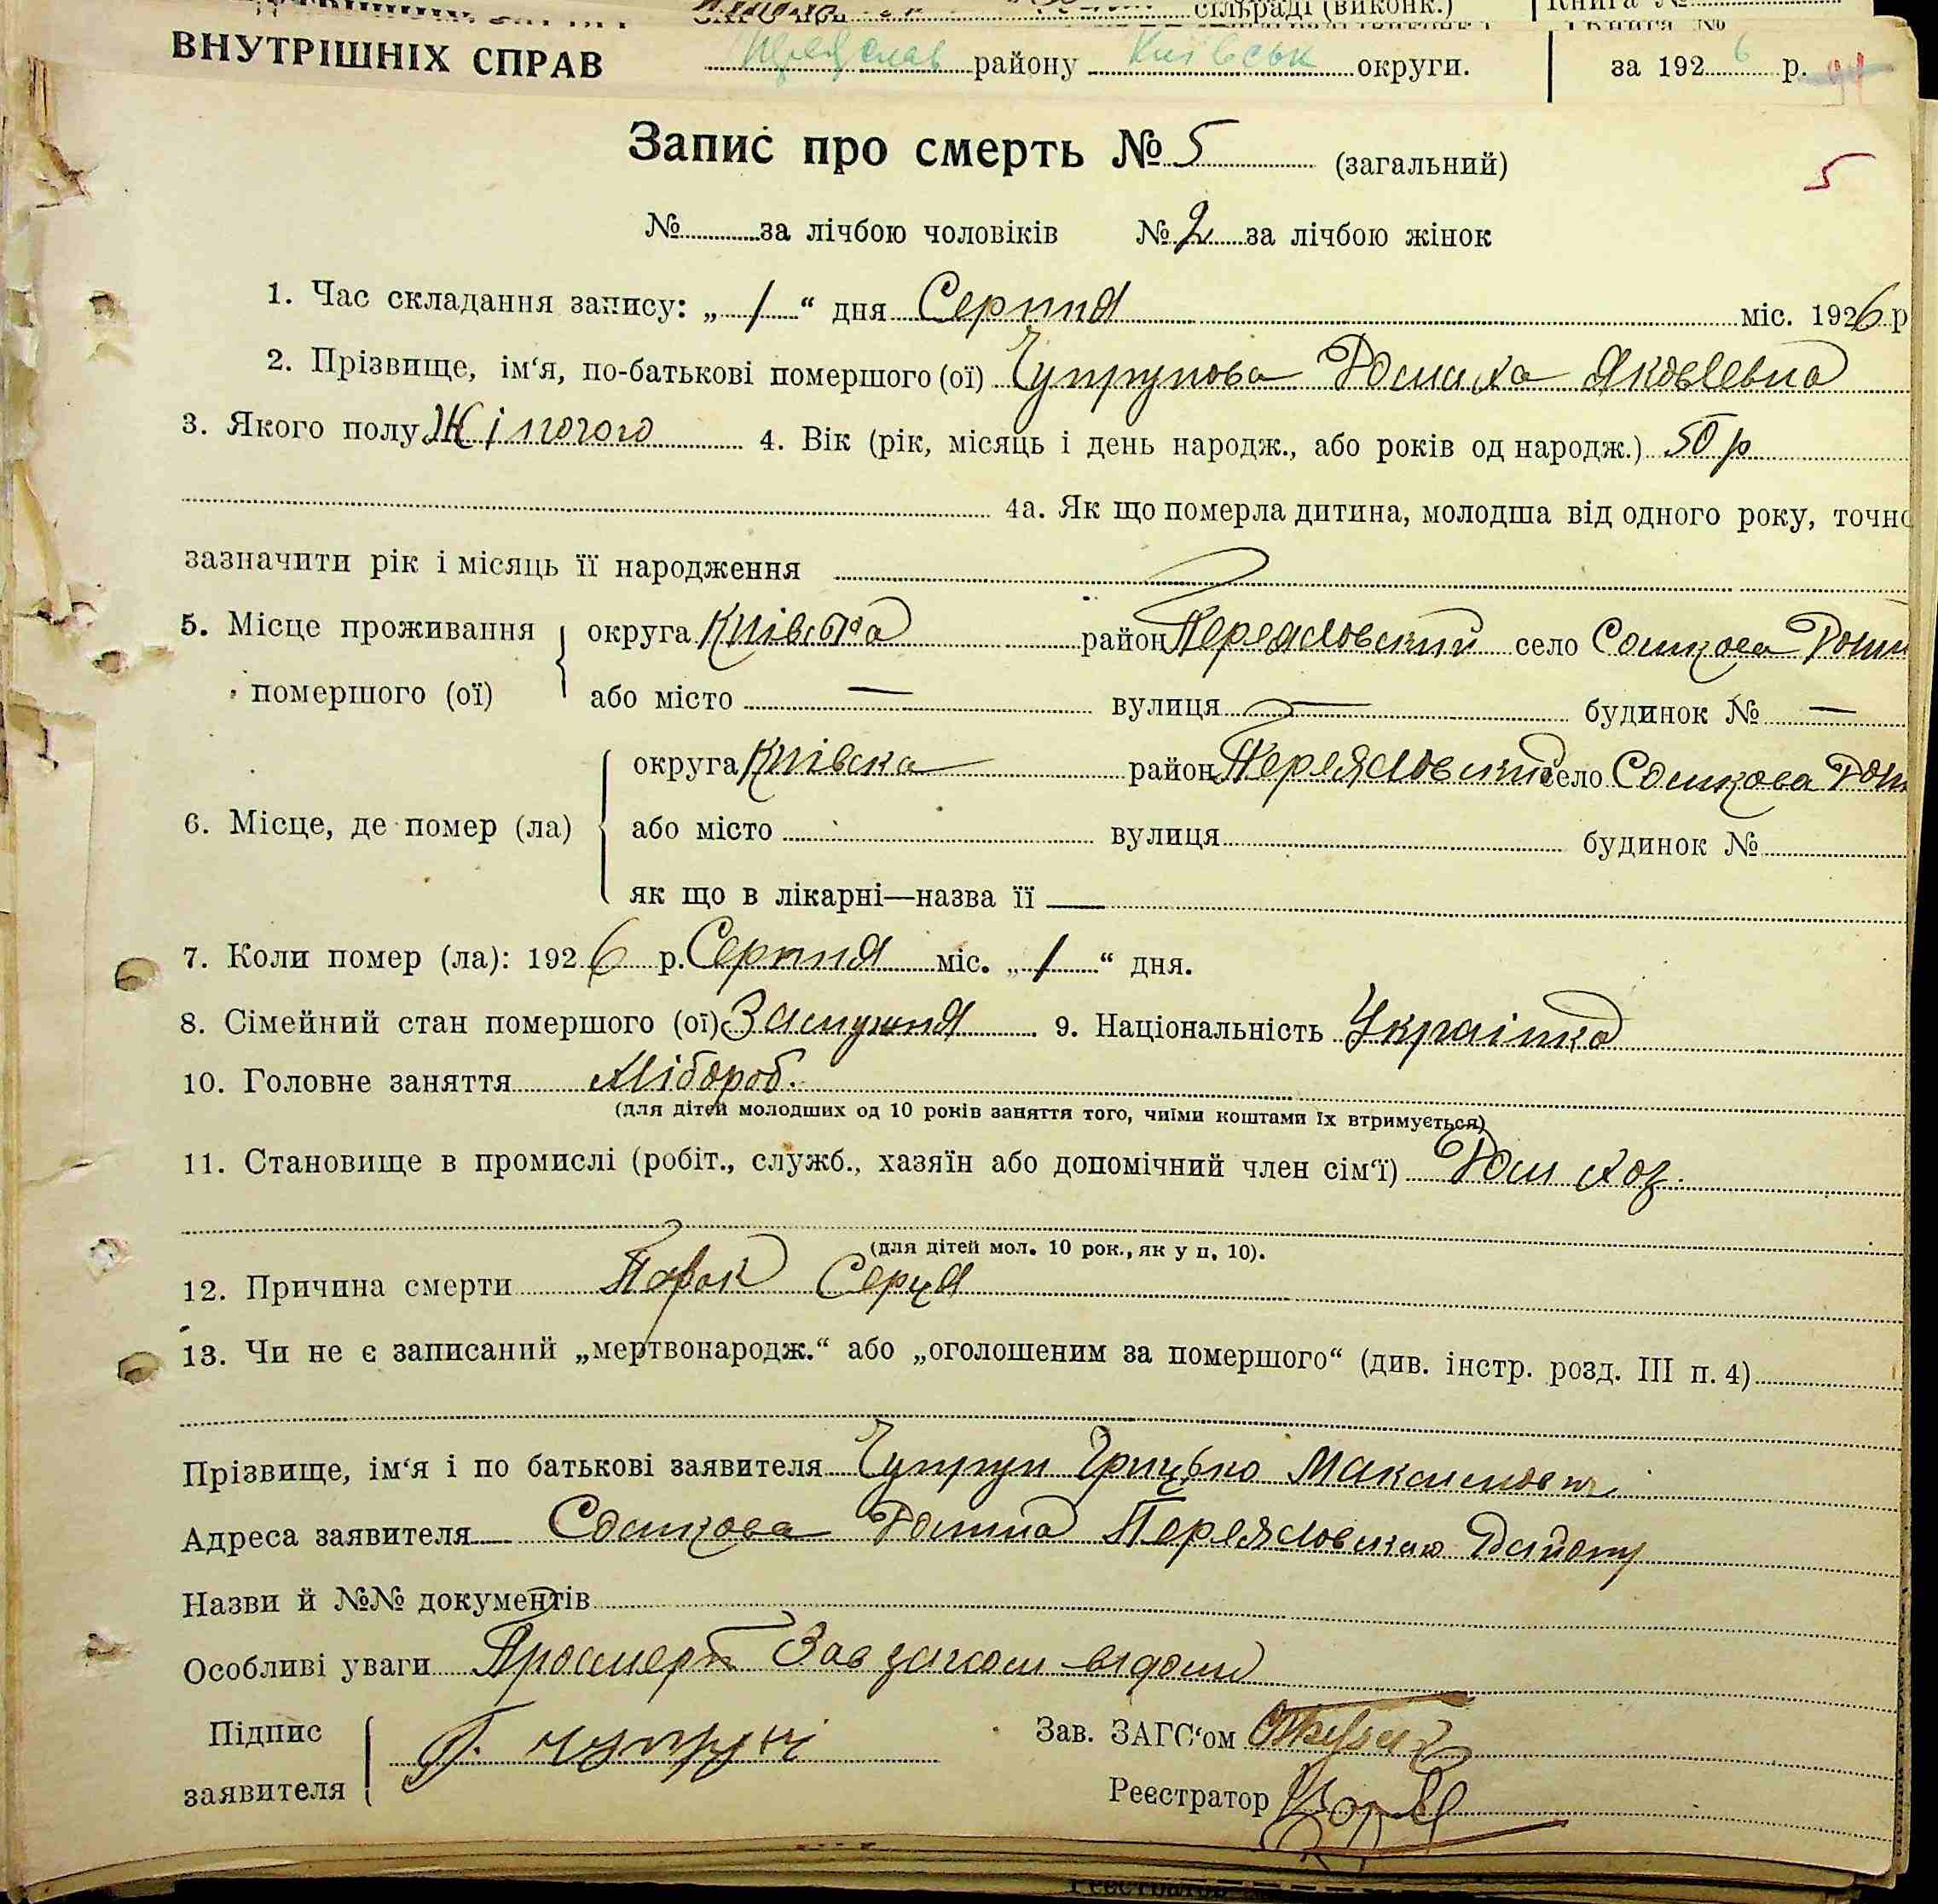 сільраді (виконк.) Книга №
ВНУТРІШНІХ СПРАВ Переяслав району Київськ округи. за 1926 р.
Запис про смерть № 5 (загальний) 5
№ за лічбою чоловіків № 2 за лічбою жінок
1. Час складання запису: „ 1 “ дня Серпня міс. 1926 р
2. Прізвище, ім‘я, по-батькові помершого (ої) Чупрунова Домаха Яковлевна
3. Якого полу Жіночого 4. Вік (рік, місяць і день народж., або років од народж.) 50 р
4а. Як що померла дитина, молодша від одного року, точно
зазначити рік і місяць її народження
5. Місце проживання округа Київска район Переясловский село Сомкова Долин
помершого (ої) або місто — вулиця — будинок № —
округа Київска район Переясловский село Сомкова Доли
6. Місце, де помер (ла) або місто вулиця будинок №
як що в лікарні—назва її —
7. Коли помер (ла): 1926 р. Серпня міс. „ 1 “ дня.
8. Сімейний стан помершого (ої) Замужня 9. Національність Українка
10. Головне заняття Хлібороб.
(для дітей молодших од 10 років заняття того, чиїми коштами їх втримується)
11. Становище в промислі (робіт., служб., хазяїн або допомічний член сім‘ї) Дом хоз.
(для дітей мол. 10 рок., як у п. 10).
12. Причина смерти Порок Серця
13. Чи не є записаний „мертвонародж.“ або „оголошеним за помершого“ (див. інстр. розд. III п. 4)
Прізвище, ім‘я і по батькові заявителя Чупрун Грицько Максимович
Адреса заявителя Сомкова Долина Переясловскаю Району
Назви й №№ документів
Особливі уваги Просмерть Зав загсом відомо
Підпис Зав. ЗАГС‘ом
заявителя Г. Чупрун Реєстратор